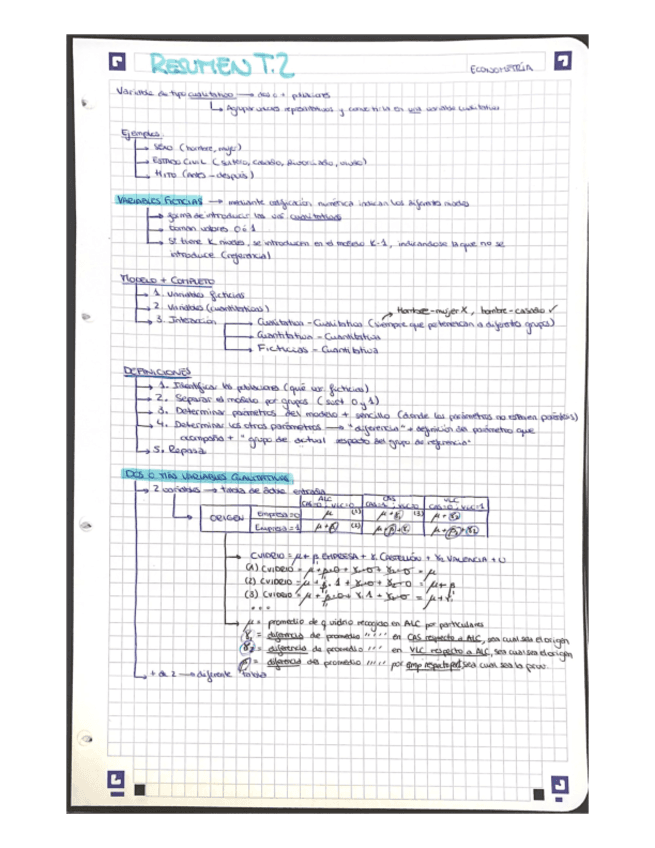 RESUMEN T.2
ECONOMETRÍA
Variable de tipo cualitativo → dos o + poblaciones
↳ Agrupar valores representativos y convertirla en una variable cualitativa
Ejemplos
↳ SEXO (hombre, mujer)
↳ ESTADO CIVIL (soltero, casado, divorciado, viudo)
↳ HITO (antes - después)
VARIABLES FICTICIAS → mediante codificación numérica indican los diferentes niveles
↳ forma de introducir las var. cualitativas
↳ toman valores 0 ó 1
↳ Si tiene K niveles, se introducen en el modelo K-1, indicándose la que no se
introduce (referencia)
MODELO + COMPLETO
↳ 1. Variables ficticias
↳ 2. Variables (cuantitativas)
Hombre-mujer X, hombre-casado ✓
↳ 3. Interacción
↳ Cualitativa - Cualitativa (siempre que pertenezcan a diferente grupo)
↳ Cuantitativa - Cuantitativa
↳ Ficticias - Cuantitativa
DEFINICIONES
↳ 1. Identificar las poblaciones (qué var ficticias)
↳ 2. Separar el modelo por grupos (sust 0 y 1)
↳ 3. Determinar parámetros del modelo + sencillo (donde los parámetros no estén
↳ 4. Determinar los otros parámetros → "diferencia" + definición del parámetro que
acompaña + "grupo de actual respecto del grupo de referencia"
↳ 5. Repasa
DOS O MÁS VARIABLES CUALITATIVAS
↳ 2 variables → tabla de doble entrada
ALC CAS VLC
CAS=0, VLC=0 CAS=1, VLC=0 CAS=0, VLC=1
ORIGEN
Empresa=0 μ (1) μ+γ₁ (3) μ+γ₂
Empresa=1 μ+β (2) μ+β+γ₁ μ+β+γ₂
CVIDRIO = μ + β EMPRESA + γ₁ CASTELLÓN + γ₂ VALENCIA + U
(1) CVIDRIO = μ + β·0 + γ₁·0 + γ₂·0 = μ
(2) CVIDRIO = μ + β·1 + γ₁·0 + γ₂·0 = μ+β
(3) CVIDRIO = μ + β·0 + γ₁·1 + γ₂·0 = μ+γ₁
...
μ = promedio de q vidrio recogido en ALC por particulares
γ₁ = diferencia de promedio " " " " en CAS respecto a ALC, sea cual sea el origen
γ₂ = diferencia de promedio " " " en VLC respecto a ALC, sea cual sea el origen
β = diferencia del promedio " " " " " por emp respecto part, sea cual sea la prov.
↳ + de 2 → diferente tablas